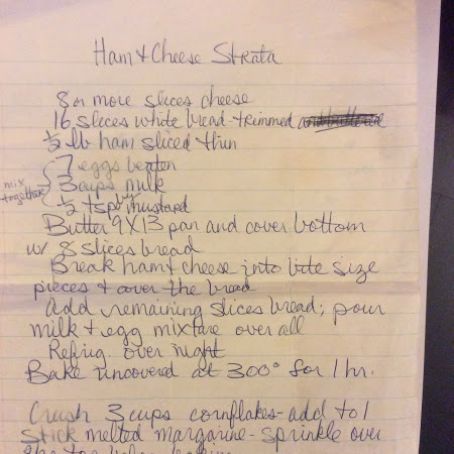 Ham & Cheese Strata
8 or more slices cheese
16 slices white bread - trimmed
1/2 lb ham sliced thin
7 eggs beaten
mix together { 3 cups milk
1/2 tsp dry mustard
Butter 9X13 pan and cover bottom
w/ 8 slices bread
Break ham & cheese into bite size
pieces & cover the bread
Add remaining slices bread; pour
milk & egg mixture over all
Refrig. over night
Bake uncovered at 300° for 1 hr.
Crush 3 cups cornflakes - add to 1
stick melted margarine - sprinkle over